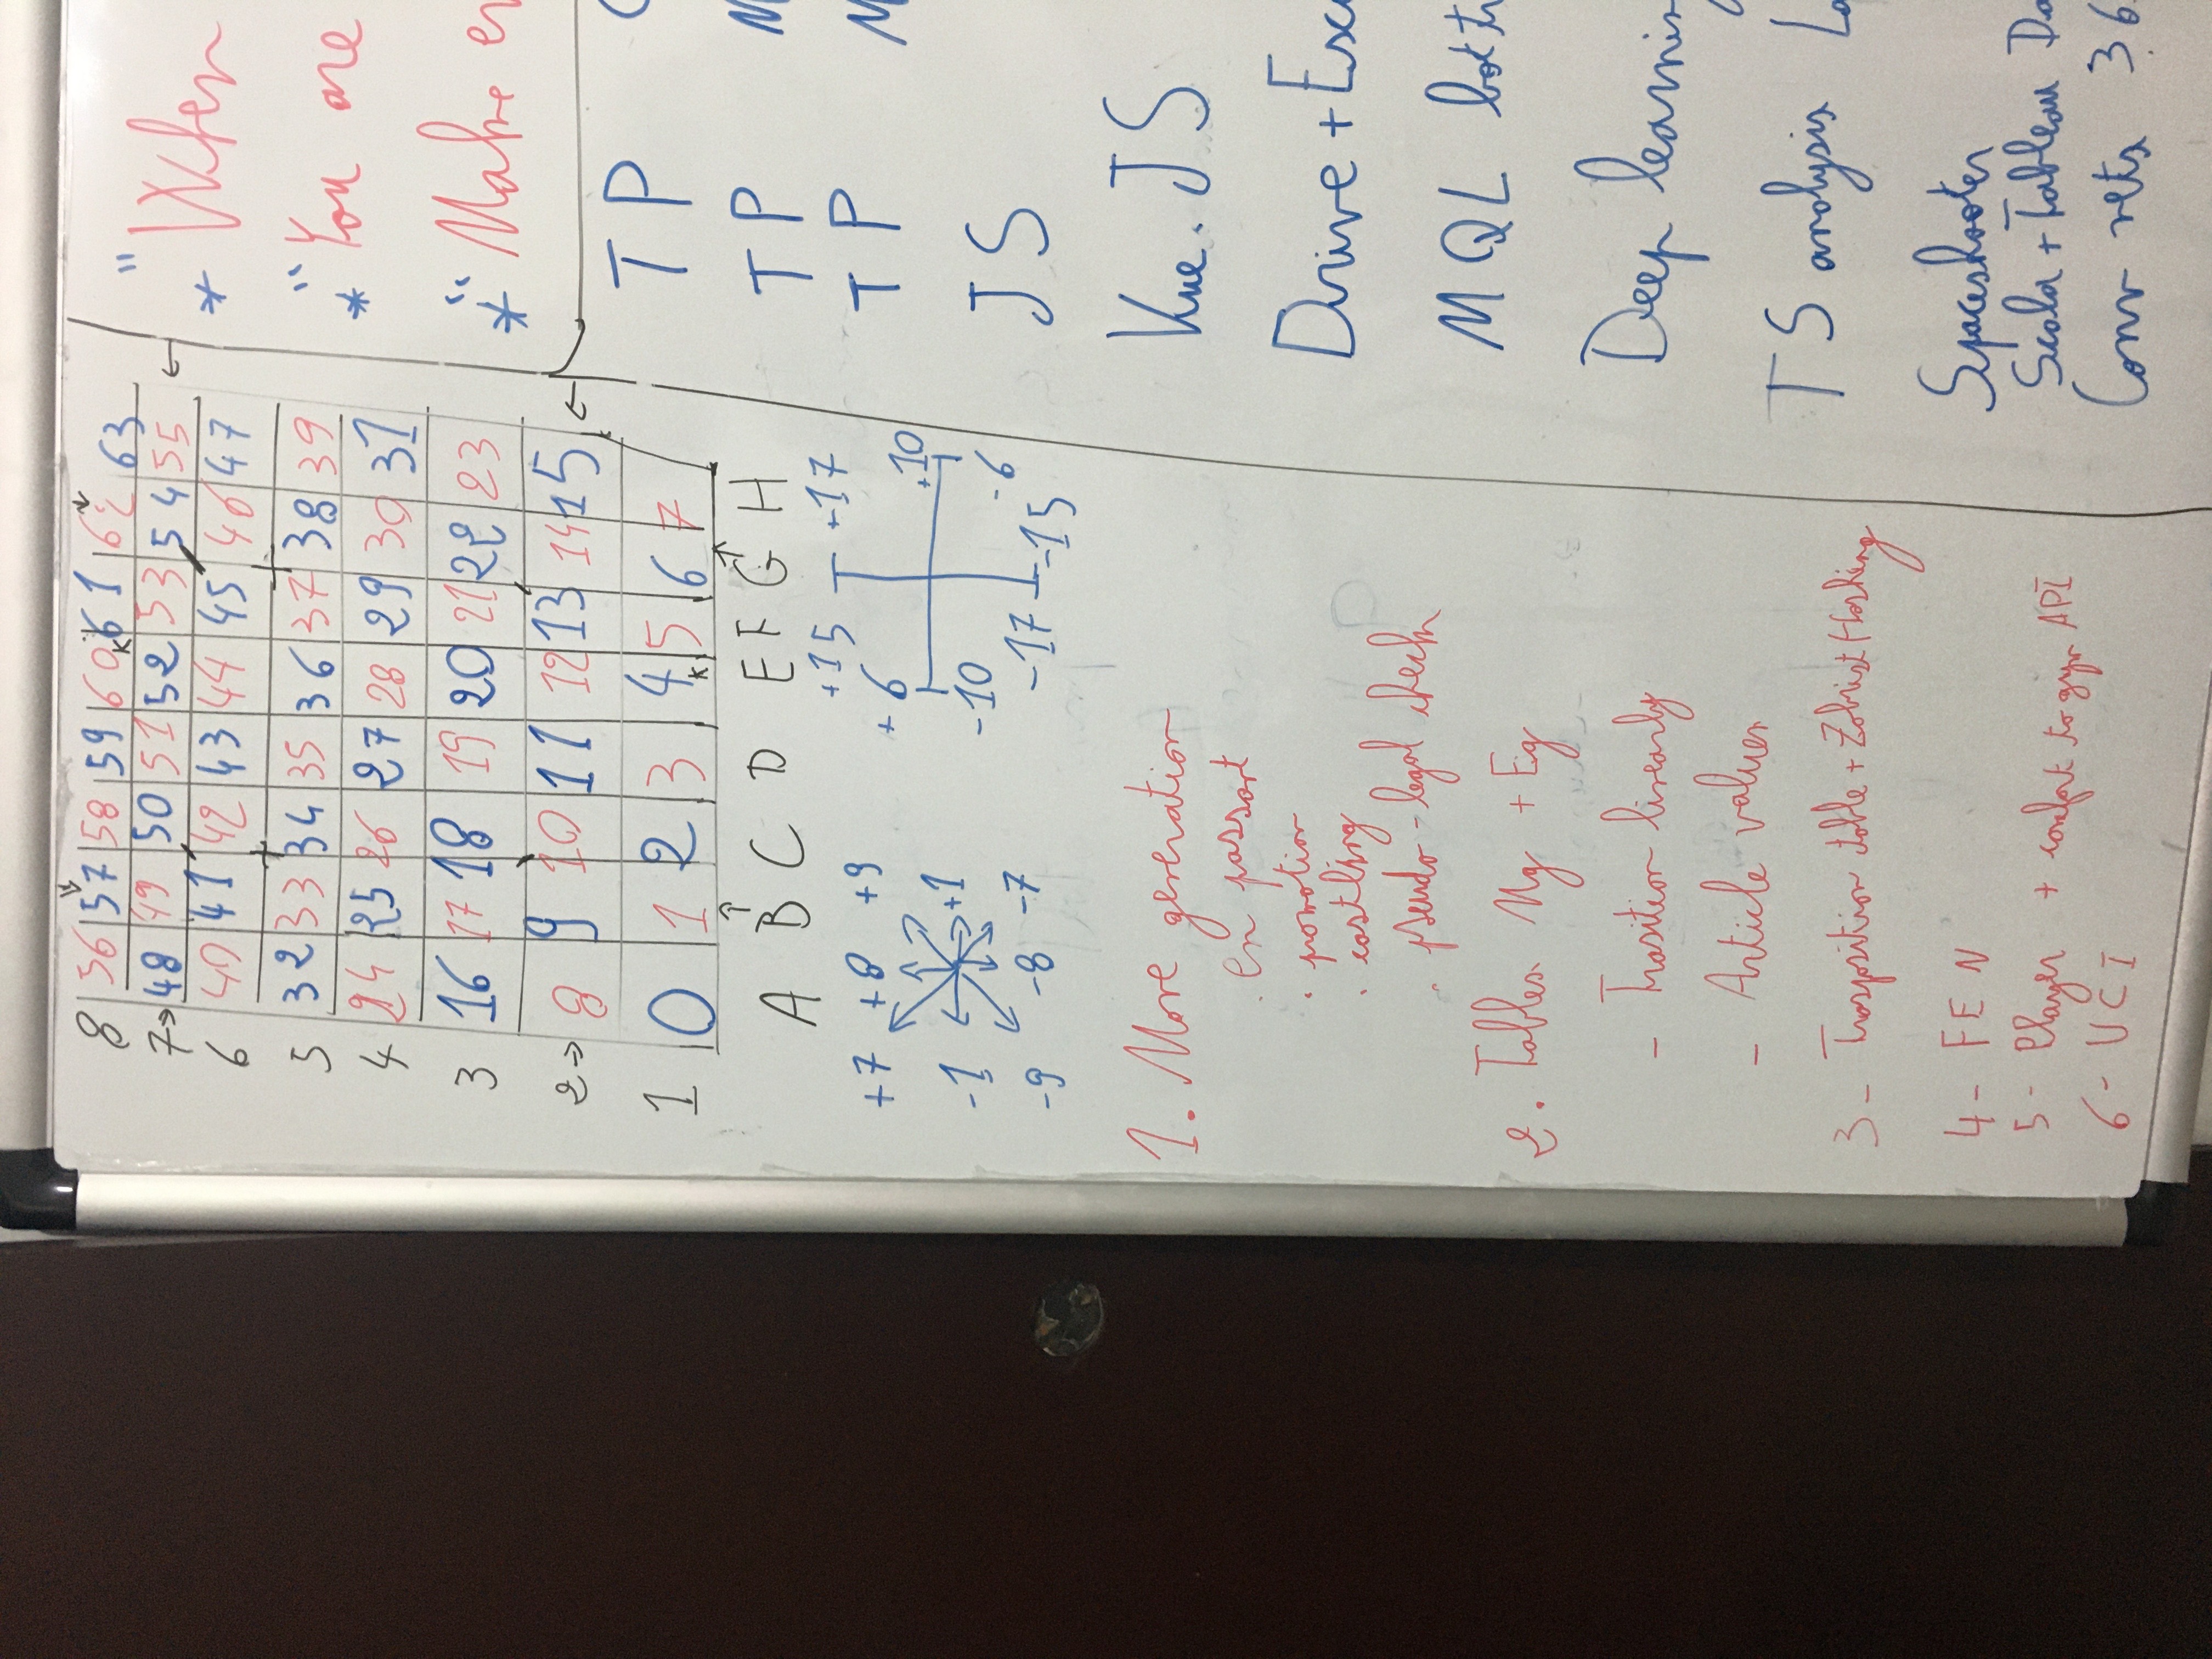 8 56 57 58 59 60 K 61 62 63
7 → 48 49 50 51 52 53 54 55 ←
6 40 41 42 43 44 45 46 47
5 32 33 34 35 36 37 38 39
4 24 25 26 27 28 29 30 31
3 16 17 18 19 20 21 22 23
2 → 8 9 10 11 12 13 14 15 ←
1 0 1 2 3 4 K 5 6 7
A B C D E F G H
+7 +8 +9
-1 +1
-9 -8 -7
+15 +17
+6 +10
-10 -6
-17 -15
1. Move generation
. en passant
. promotion
. castling
. pseudo-legal check
2. Tables Mg + Eg
- Trasition linearly
- Article values
3- Trasposition table + Zobrist Hashing
4- FEN
5- Player + confort to gym API
6- UCI
* "When
* "You are
* "Make
TP
TP M
TP M
JS
Vue.JS
Drive + Esc
MQL bot
Deep learnin
TS analysis
Spaceshooter
Scala + Tableau Da
Conv nets 36